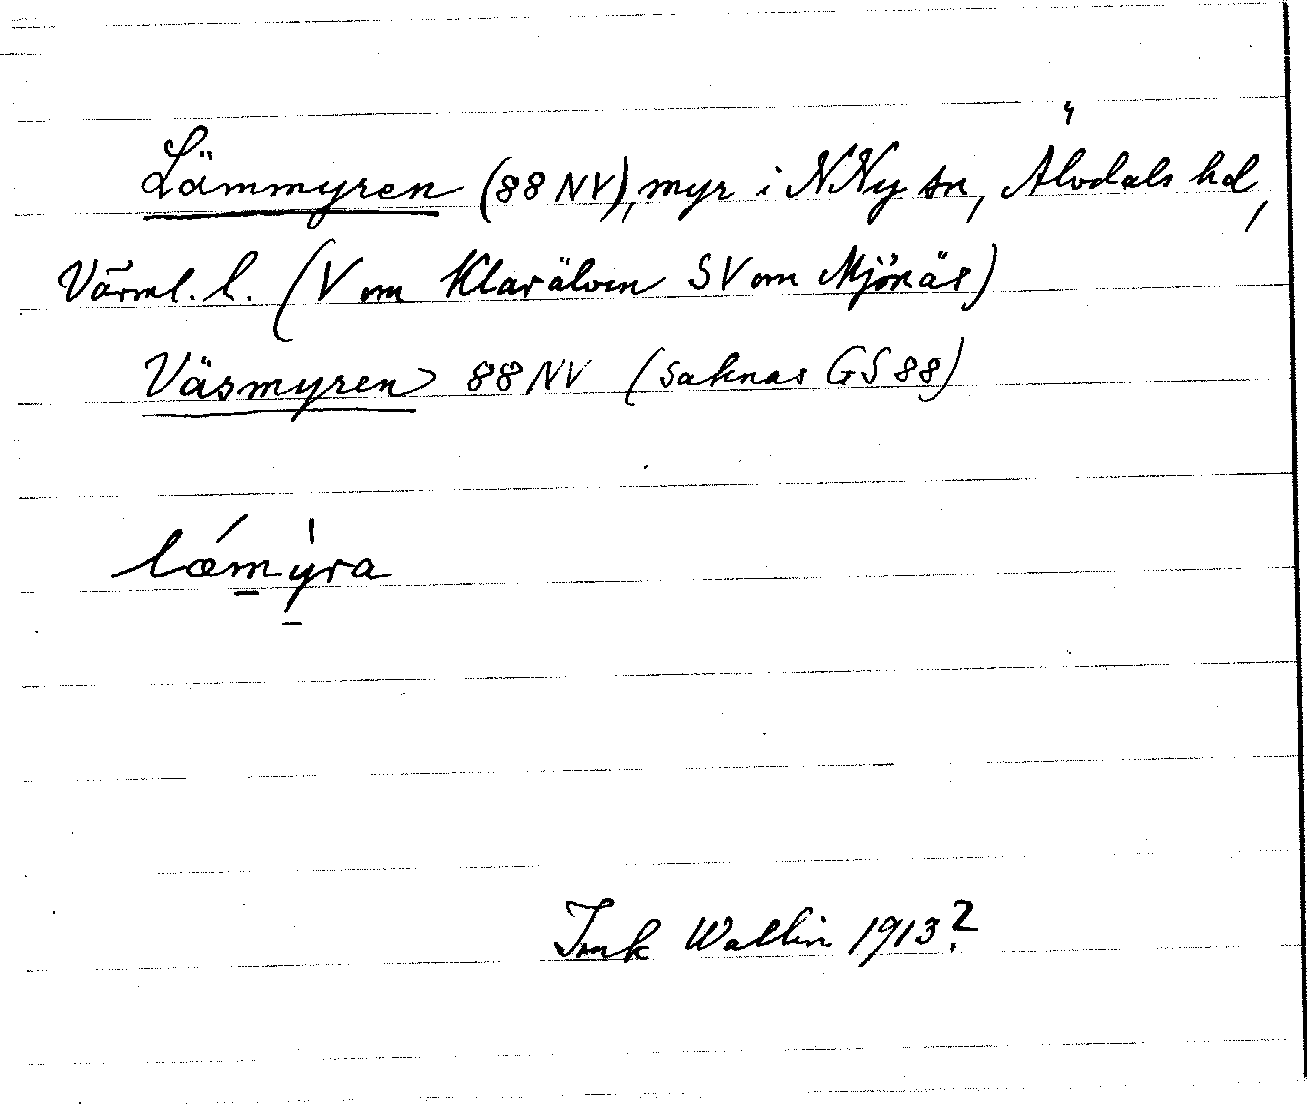 Lämmyren (88 NV), myr i N Ny sn, Älvdals hd,
Värml. l. (V om Klarälven SV om Mjönäs)
Väsmyren 88 NV (saknas GS 88)
læ´my̍ra
Wallin 1913?